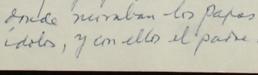 donde moraban los papas
ídolos, y con ellos el padre